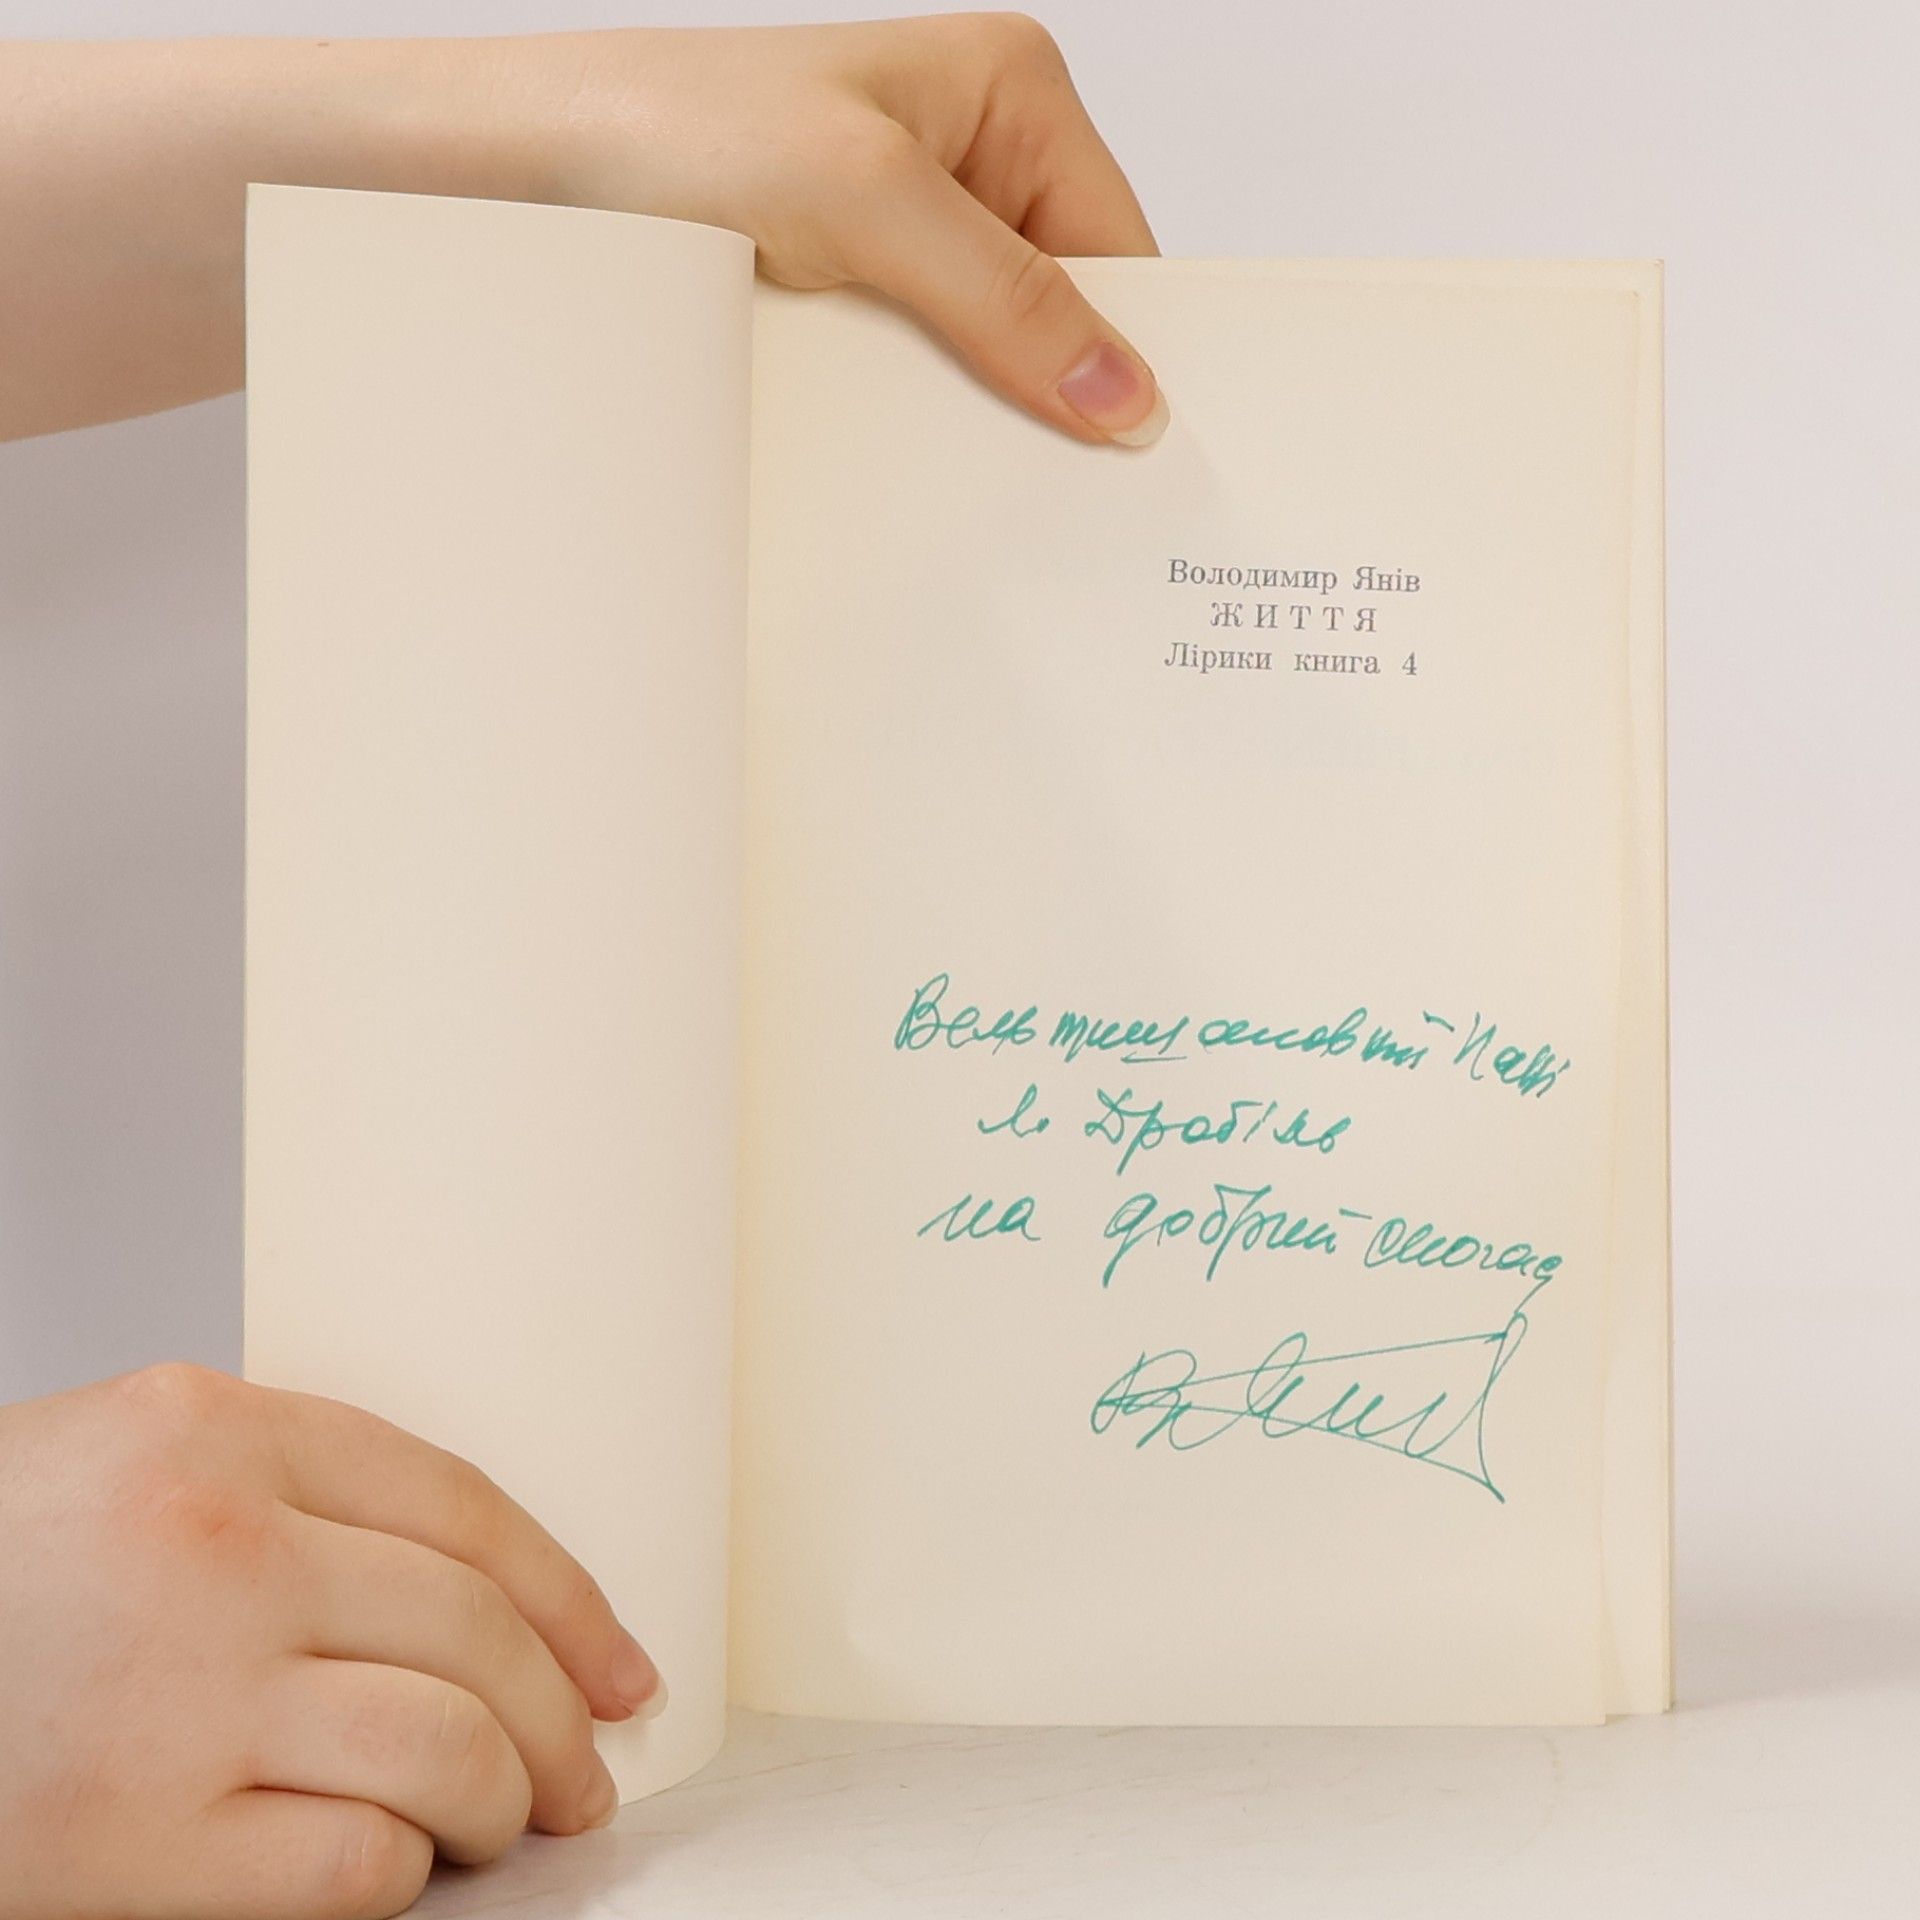 Володимир Янів
ЖИТТЯ
Лірики книга 4
Вельмишановній Пані
Л. Дробіяв
на добрий спогад
В. Янів